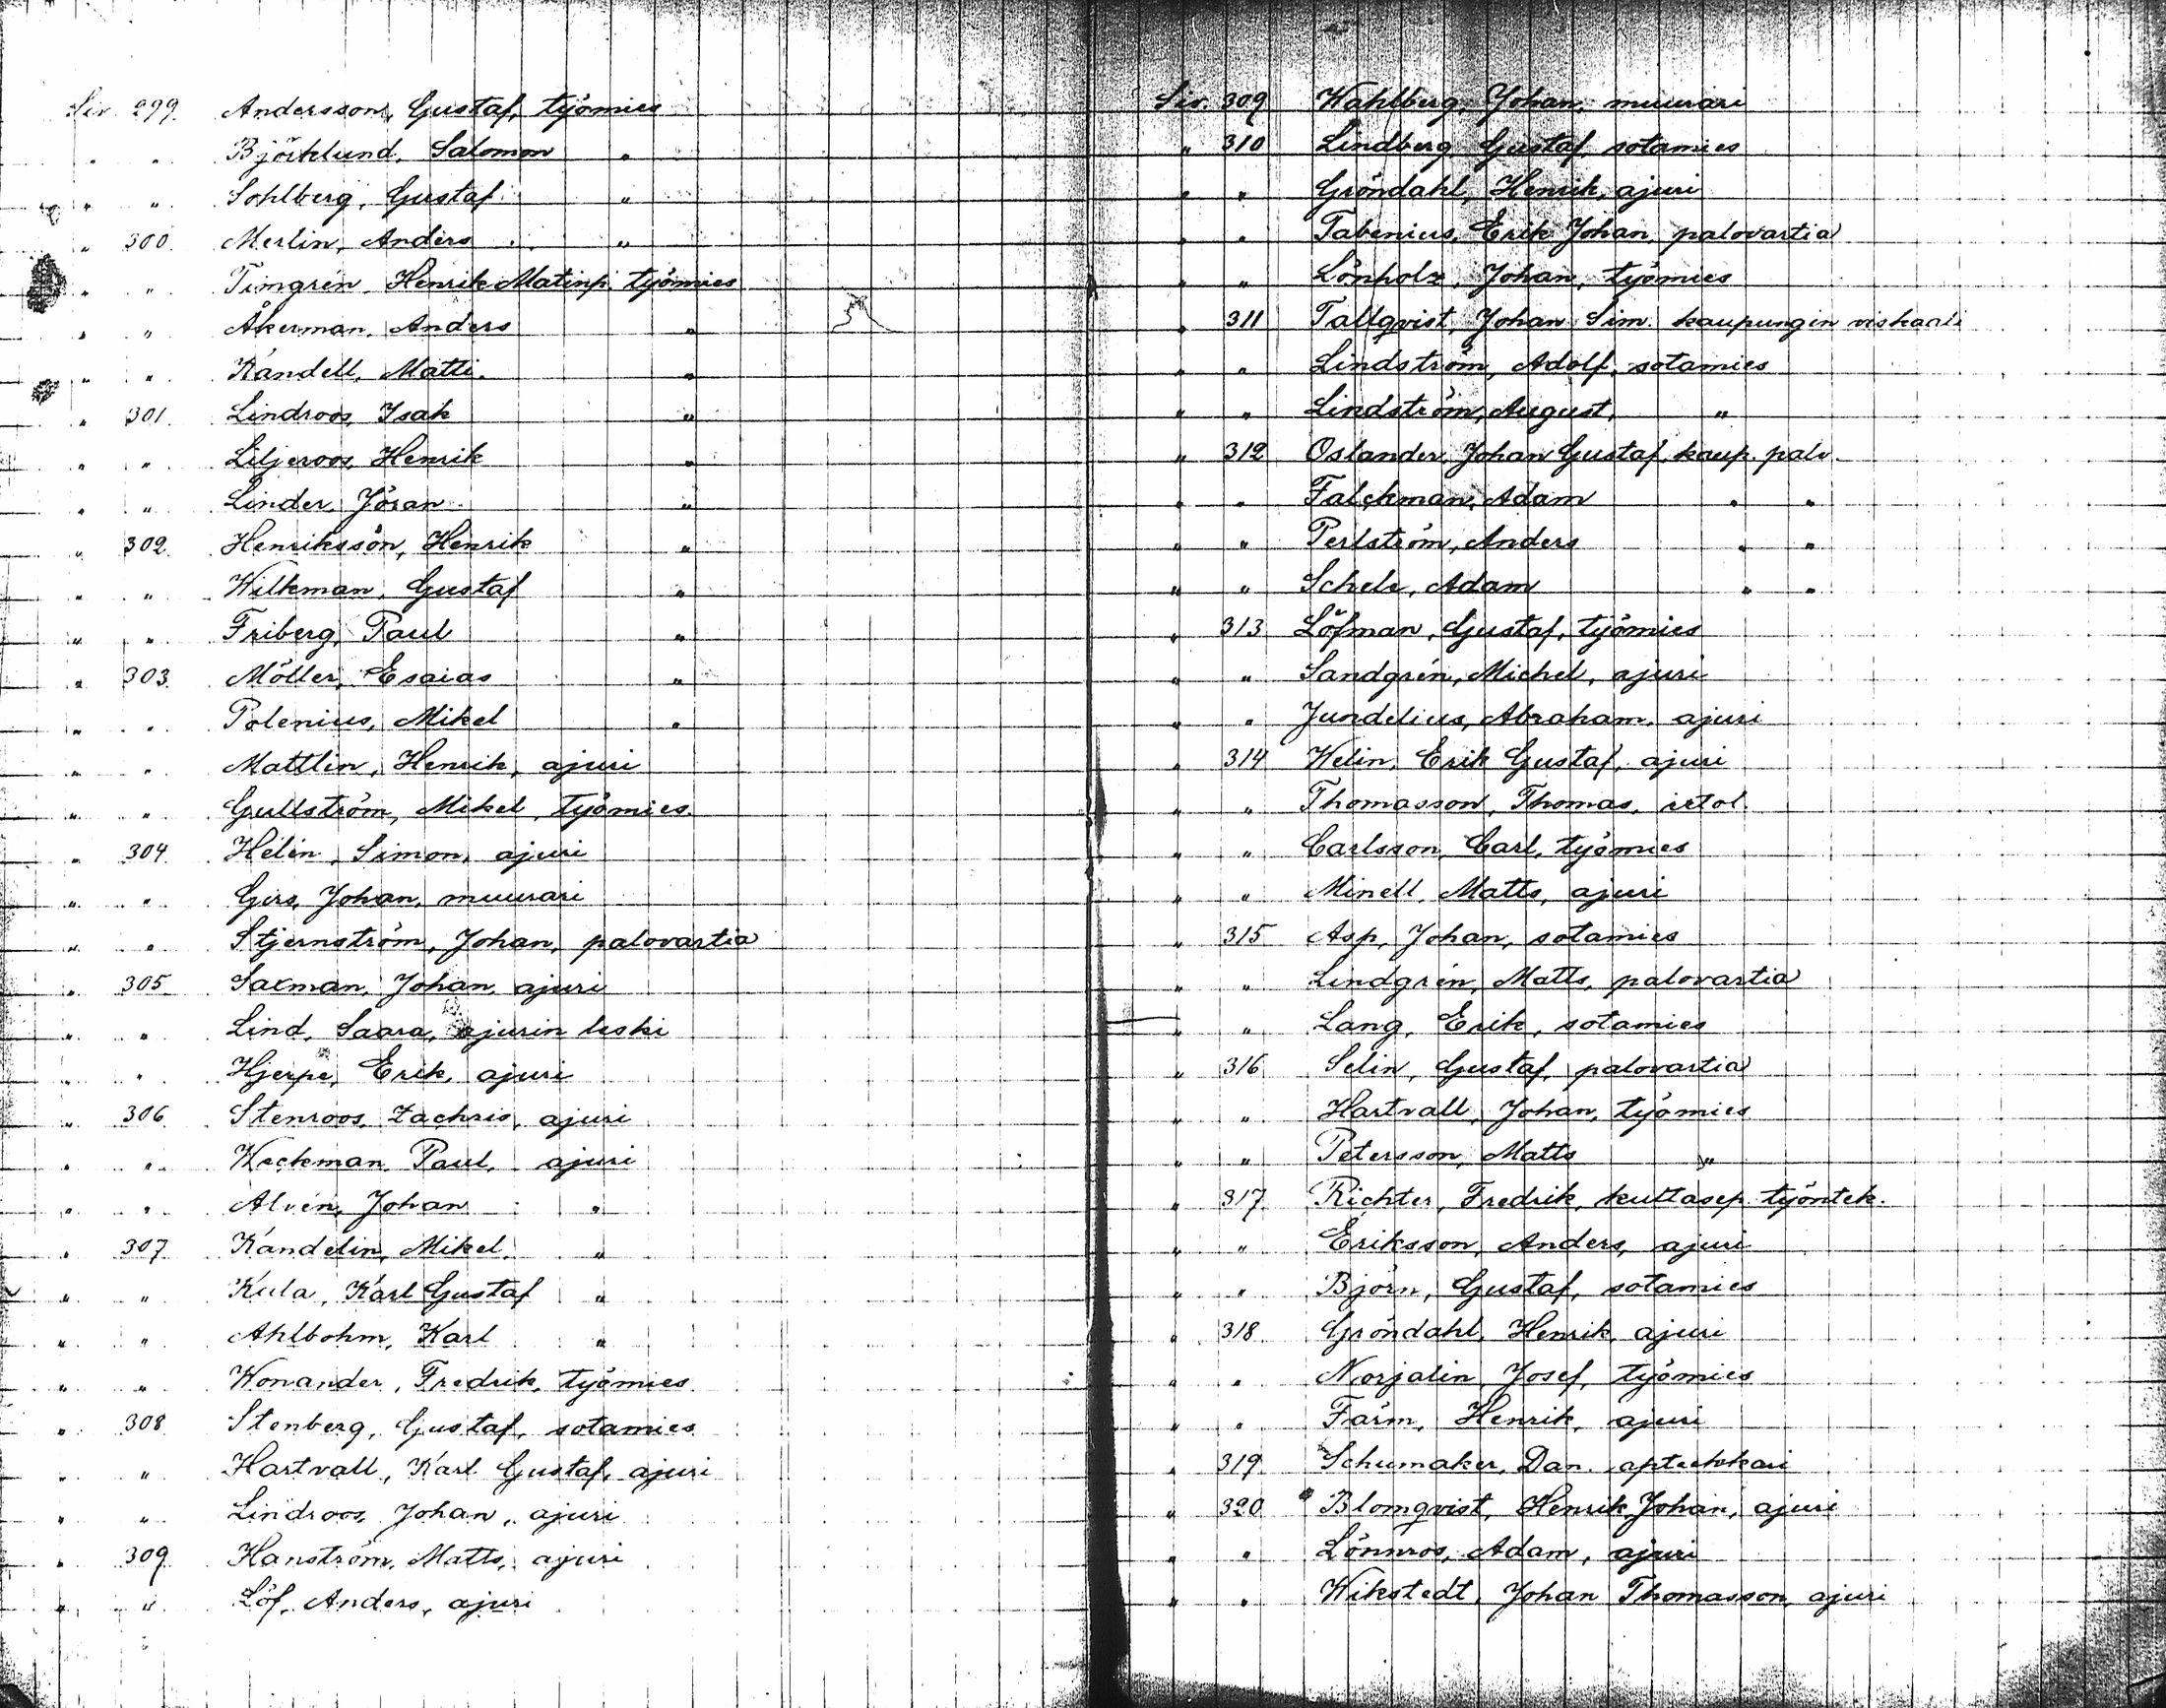 Siv. 299. Andersson, Gustaf, työmies
" " Björklund, Salomon "
" " Sohlberg, Gustaf "
" 300. Merlin, Anders "
" " Timgrén, Henrik Matinp. työmies
" " Åkerman, Anders "
" " Kandell, Matti. "
" 301. Lindroos, Isak "
" " Liljeroos, Henrik "
" " Linder, Jöran "
" 302. Henriksson, Henrik "
" " Wilkman, Gustaf "
" " Friberg, Paul "
" 303. Möller, Esaias "
" " Polenius, Mikel "
" " Mattlin, Henrik, ajuri
" " Gullström, Mikel, työmies.
" 304. Helin, Simon, ajuri
" " Girs, Johan, muurari
" " Stjernström, Johan, palovartia
" 305. Saxman, Johan, ajuri
" " Lind, Saara, ajurin leski
" " Hjerpe, Erik, ajuri
" 306 Stenroos, Zachris, ajuri
" " Weckman, Paul, ajuri
" " Alvén, Johan "
" 307. Kandelin, Mikel. "
" " Kula, Karl Gustaf "
" " Ahlbohm, Karl "
" " Wonander, Fredrik, työmies.
" 308 Stenberg, Gustaf, sotamies
" " Hartvall, Karl Gustaf, ajuri
" " Lindroos, Johan, ajuri
" 309. Hanström, Matts, ajuri
" " Löf, Anders, ajuri
Siv. 309 Wahlberg, Johan, muurari
" 310 Lindberg Gustaf, sotamies
" " Gröndahl, Henrik, ajuri
" " Tabenius, Erik Johan, palovartia
" " Lönholz, Johan, työmies
" 311 Tallqvist, Johan Sim. kaupungin viskaali
" " Lindström, Adolf, sotamies
" " Lindström, August, "
" 312 Oslander, Johan Gustaf, kaup. palv.
" " Falckman, Adam " "
" " Perlström, Anders " "
" " Schele, Adam " "
" 313 Löfman, Gustaf, työmies
" " Sandgrén, Michel, ajuri
" " Jundelius, Abraham, ajuri
" 314 Welin, Erik Gustaf, ajuri
" " Thomasson, Thomas, irtol.
" " Carlsson, Carl, työmies
" " Minell, Matts, ajuri
" 315 Asp, Johan, sotamies
" " Lindgrén, Matts, palovartia
" " Lang, Erik, sotamies
" 316 Selin, Gustaf, palovartia
" " Hartvall, Johan, työmies
" " Petersson, Matts "
" 317. Richter, Fredrik, kultasep. työntek.
" " Eriksson, Anders, ajuri
" " Björn, Gustaf, sotamies
" 318. Gröndahl, Henrik, ajuri
" " Norjalin, Josef, työmies
" " Farm, Henrik, ajuri
" 319. Schumaker, Dan. apteekkari
" 320 Blomqvist, Henrik Johan, ajuri
" " Lönnros, Adam, ajuri
" " Wikstedt, Johan Thomasson, ajuri